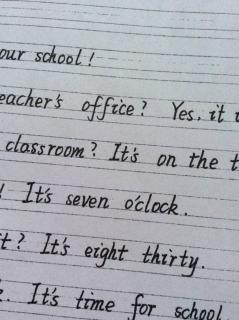 our school!
eacher's office? Yes, it
classroom? It's on the
! It's seven o'clock.
t? It's eight thirty.
. It's time for school.